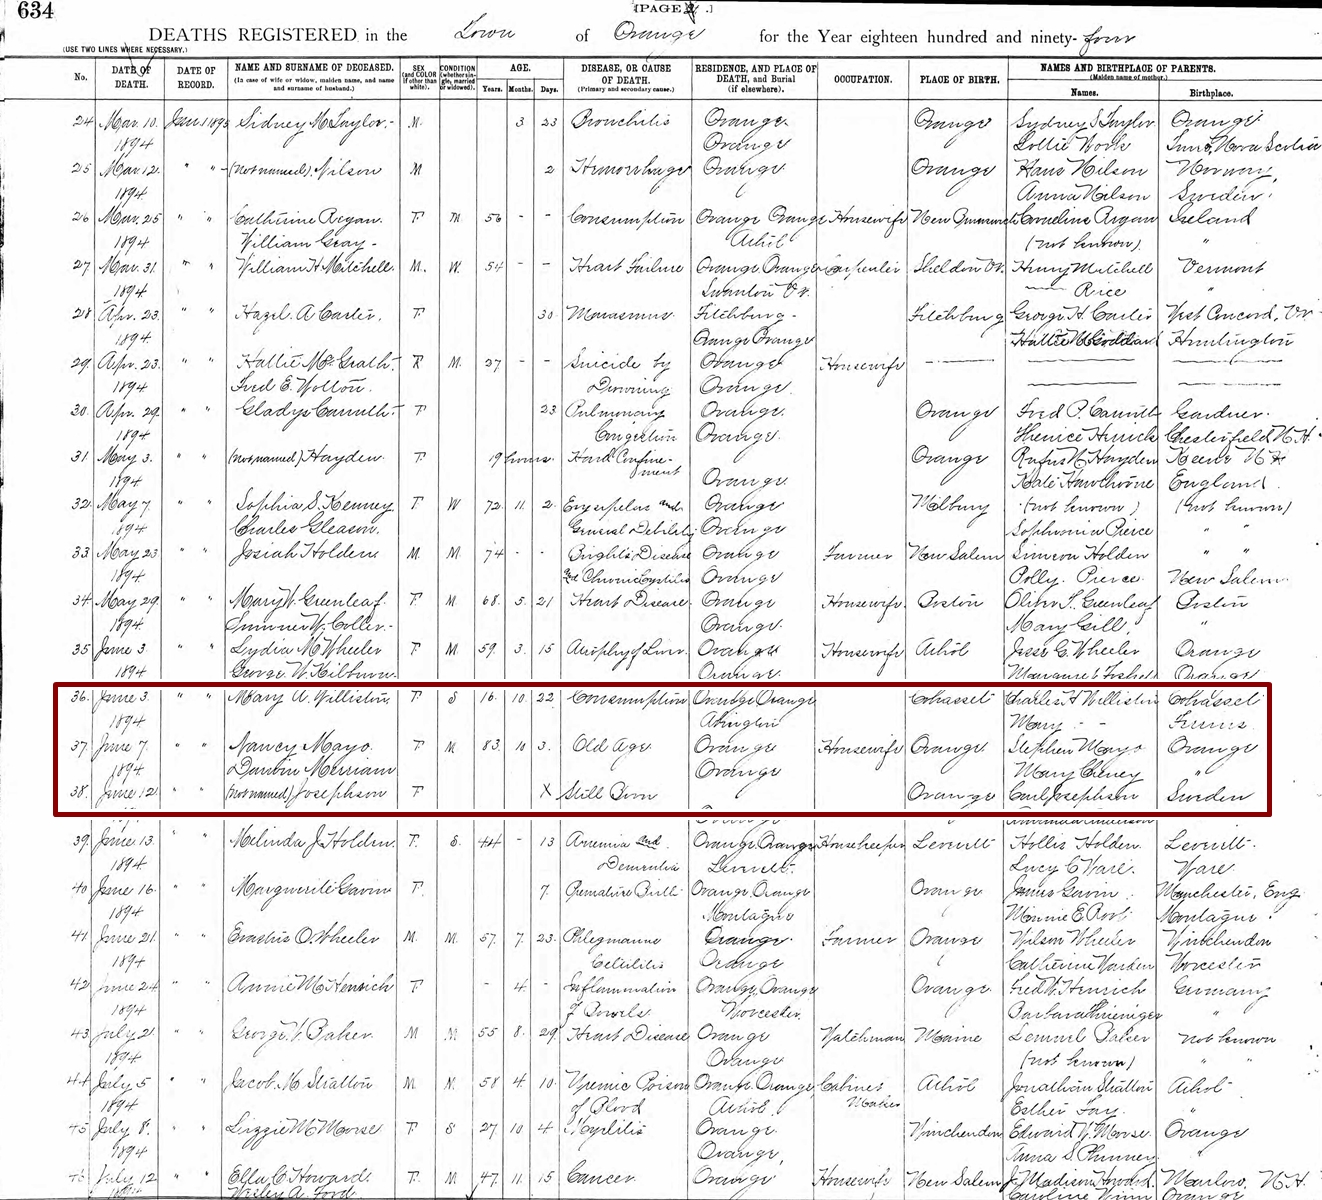 634
[PAGE .]
DEATHS REGISTERED in the Town of Orange for the Year eighteen hundred and ninety-four
(USE TWO LINES WHERE NECESSARY.)
No. DATE OF DEATH. DATE OF RECORD. NAME AND SURNAME OF DECEASED. (In case of wife or widow, maiden name, and name and surname of husband.) SEX (and COLOR if other than white). CONDITION (whether single, married or widowed). AGE. Years. Months. Days. DISEASE, OR CAUSE OF DEATH. (Primary and secondary cause.) RESIDENCE, AND PLACE OF DEATH, and Burial (if elsewhere). OCCUPATION. PLACE OF BIRTH. NAMES AND BIRTHPLACE OF PARENTS. (Maiden name of mother.) Names. Birthplace.
24 Mar. 10. Jan. 1 1895 Sidney M. Taylor. M. 3 23 Bronchitis Orange Orange Sydney S Taylor Orange
1894 Orange Lottie Work Nova Scotia
25 Mar. 12. " " (not named) Nilson M 2 Hemorrhage Orange Orange Hans Nilson Norway,
1894 Anna Nilson Sweden.
26 Mar. 25 " " Catherine Regan. F M 56 - - Consumption Orange Orange Housewife New Brunswick Cornelius Regan Ireland
1894 William Gray - Athol (not known) "
27 Mar. 31. " " William H. Mitchell. M. W. 54 - - Heart Failure Orange Orange Carpenter Sheldon Vt. Henry Mitchell Vermont
1894 Swanton Vt. Rice "
28 Apr. 23. " " Hazel A Carter. F 30 Marasmus Fitchburg Fitchburg George H Carter West Concord, Vt
1894 Orange Orange Hattie M Goddard Huntington
29. Apr. 23. " " Hattie McGrath. F M. 27 - - Suicide by Orange Housewife
1894 Fred E. Wotton. Drowning Orange
30. Apr. 29. " " Gladys Carruth. F 23 Pulmonary Orange Orange Fred P. Carruth Gardner.
1894 Congestion Orange Chesterfield N.H.
31. May 3. " " (not named) Hayden F. 19 hours. Hard Confine- Orange Rufus N. Hayden Keene N H
1894 ment Orange Kate Hawthorne England.
32. May 7. " " Sophia S. Kenney F W 72. 11. 2. Erysipelas and Orange Milbury (not known) (not known)
1894 Charles Gleason. General Debility Orange Sophronia Pierce "
33 May 23 " " Josiah Holden M M 74 - - Bright's Disease Orange Farmer New Salem Simeon Holden " "
1894 and Chronic Cystitis Orange Polly Pierce New Salem
34. May 29. " " Mary W. Greenleaf. F M. 68. 5. 21 Heart Disease. Orange Housewife. Boston Oliver S. Greenleaf Boston
1894. Sumner W. Coller - Orange Mary Gill "
35 June 3. " " Lydia M. Wheeler F M. 59. 3. 15 Atrophy of Liver. Orange Housewife Athol Jesse C. Wheeler Orange
1894 George W. Kilburn Orange Orange
36. June 3. " " Mary A. Williston F S 16. 10. 22. Consumption Orange Orange Cohasset Charles H Williston Cohassett
1894 Abington Mary - -
37. June 7. " " Nancy Mayo. F M. 83. 10 3. Old Age. Orange Housewife Orange Stephen Mayo Orange
1894 Darwin Merriam Orange Mary Cheney "
38. June 12. (not named) Josephson F X Still Born Orange Carl Josephson Sweden
39. June 13. " " Melinda J. Holden. F. S. 44 - 13 Anemia and Orange Orange Housekeeper Leverett Hollis Holden. Leverett.
1894. Dementia Leverett. Lucy C Ware. Ware
40 June 16. " " Marguerite Gavin F. 7. Premature Birth Orange Orange Orange James Gavin Manchester, Eng
1894 Montague Minnie E. Root Montague.
41 June 21. " " Erastus O. Wheeler M. M. 57. 7. 23. Phlegmanus Orange Farmer Orange Nilson Wheeler Winchendon
1894 Cellulitis Orange Catherine Worden Worcester
42 June 24 " " Annie M. Henrich F - 4. - Inflammation Orange, Orange Orange. Fred W. Henrich Germany
1894 of Bowels. Worcester. "
43 July 21 " " George V. Baker. M M. 55 8. 29. Heart Disease Orange Watchman Maine Lemuel Baker not known
1894 Orange (not known) " "
44 July 5 " " Jacob M. Stratton M. M. 58 4. 10. Uremic Poison Orange Orange Cabinet Athol Jonathan Stratton Athol
1894 of Blood Athol. Maker Esther Fay. "
45 July 8. " " Lizzie M. Morse F S 27 10 4 Myelitis Orange Winchendon Edward W. Morse. Orange
1894 Orange, Anna S. Phinney "
46 July 12 " " Ella C. Howard. F M. 47. 11. 15 Cancer Orange Housewife New Salem J. Madison Howard. Marlow, N.H.
1894 Wesley A. Ford Orange